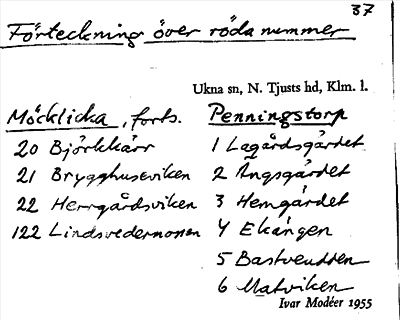 37
Förteckning över röda nummer
Ukna sn, N. Tjusts hd, Klm. l.
Möcklicka, forts.
20 Björkkärr
21 Brygghuseviken
22 Herrgårdsviken
122 Lindsvedermonen
Penningstorp
1 Lagårdsgärdet
2 Ängsgärdet
3 Hemgärdet
4 Ekängen
5 Bastveudden
6 Matviken
Ivar Modéer 1955